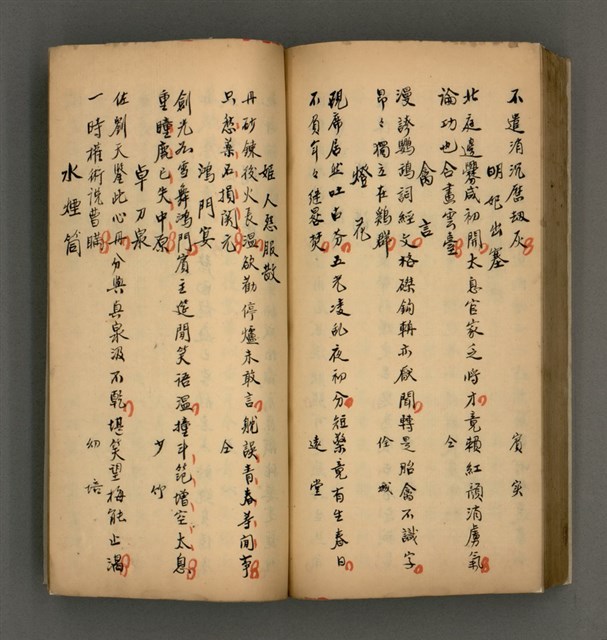 不遣消沉歷劫灰　賓實
明妃出塞
北庭邊釁咸初開太息官家乏將才竟賴紅顏消虜氣
論功也合畫雲臺　仝
禽言
漫誇鸚鵡詞經文格磔鉤輈亦厭聞轉是胎禽不識字
昂々獨立在鷄群　佺城
燈花
硯席居然吐五光凌乱夜初分短檠竟有生春日
不負年々繼晷焚　遠堂
姬人愁服散
丹砂鍊後火長溫欲勸停爐未敢言就誤青春等閒事
只愁藥石損閨元　仝
鴻門宴
劍光如雪舞鴻門賓主筵開笑語溫撞斗範增空太息
重瞳鹿已失中原　少竹
卓刀泉
佐劉天鑒此心丹分與真泉汲不乾堪笑望梅能止渴
一時權術說曹瞞　幼培
水煙筒